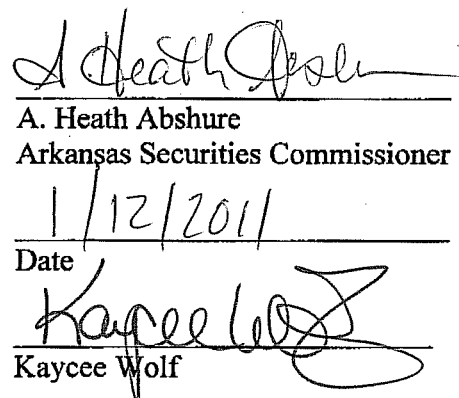 A Heath Abshure
A. Heath Abshure
Arkansas Securities Commissioner
1/12/2011
Date
Kaycee Wolf
Kaycee Wolf